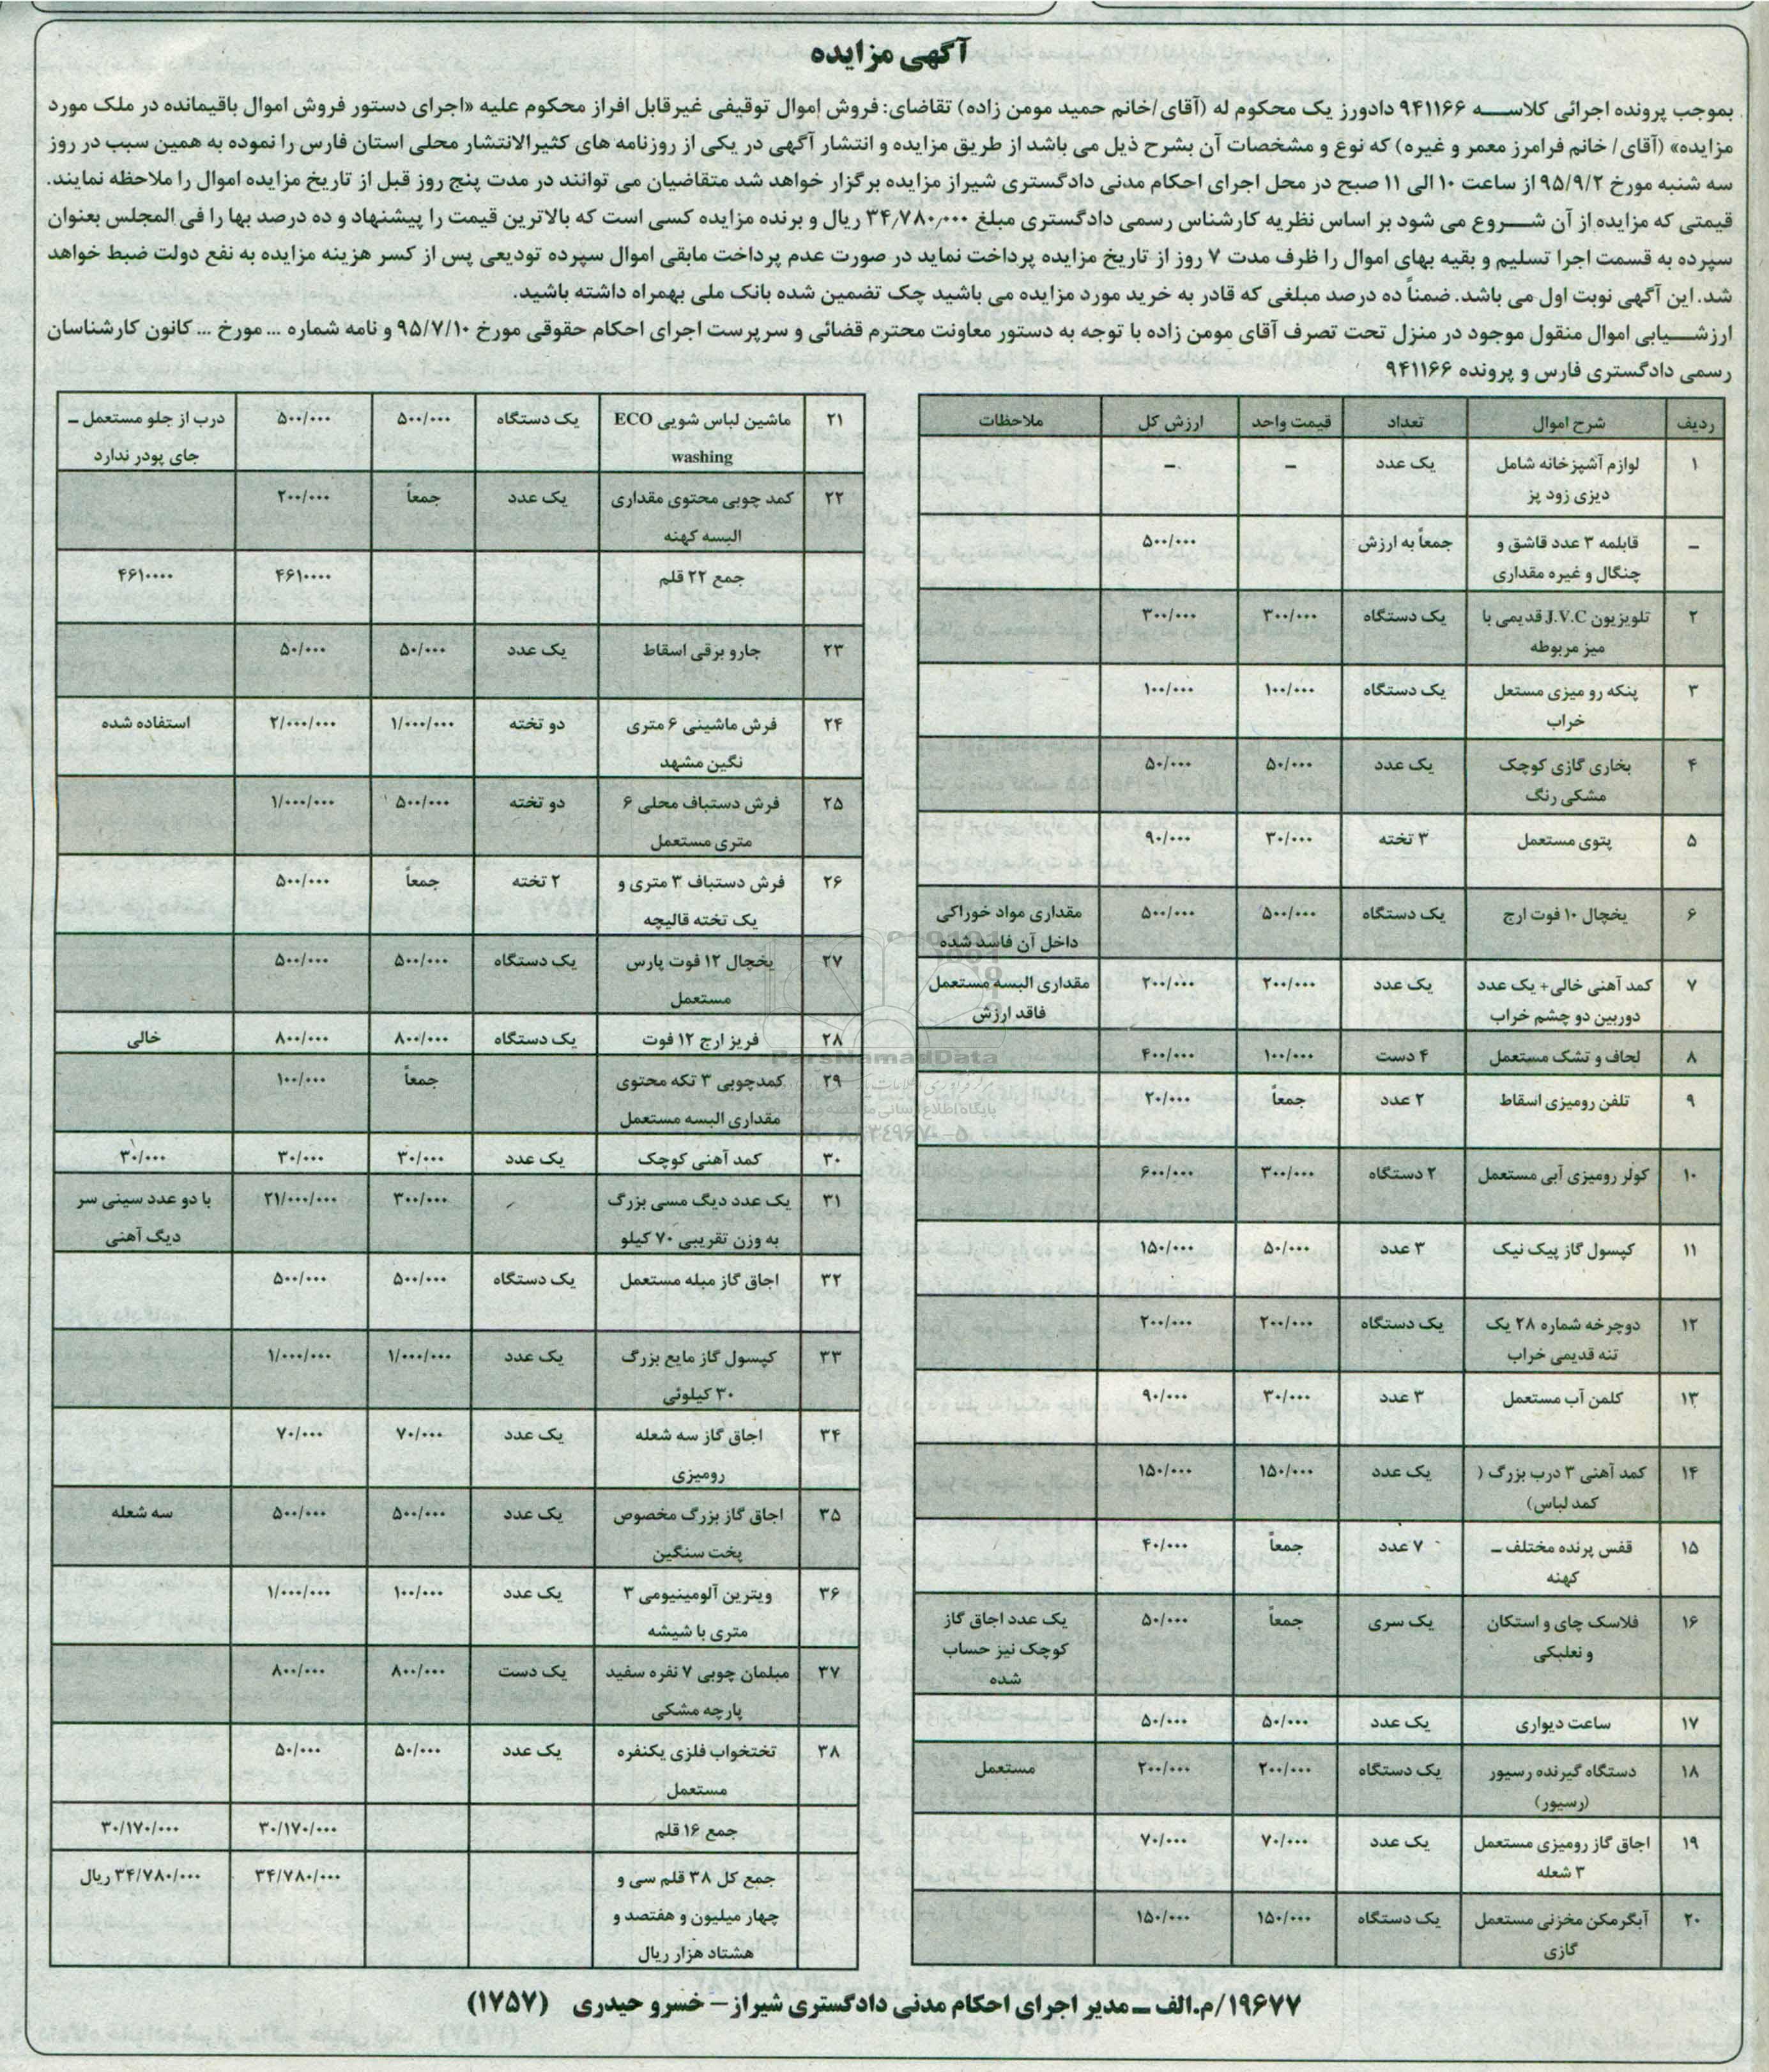 آگهی مزایده
بموجب پرونده اجرائی کلاسـه ۹۴۱۱۶۶ دادورز یک محکوم له (آقای/خانم حمید مومن زاده) تقاضای: فروش اموال توقیفی غیرقابل افراز محکوم علیه «اجرای دستور فروش اموال باقیمانده در ملک مورد
مزایده» (آقای/ خانم فرامرز معمر و غیره) که نوع و مشخصات آن بشرح ذیل می باشد از طریق مزایده و انتشار آگهی در یکی از روزنامه های کثیرالانتشار محلی استان فارس را نموده به همین سبب در روز
سه شنبه مورخ ۹۵/۹/۲ از ساعت ۱۰ الی ۱۱ صبح در محل اجرای احکام مدنی دادگستری شیراز مزایده برگزار خواهد شد متقاضیان می توانند در مدت پنج روز قبل از تاریخ مزایده اموال را ملاحظه نمایند.
قیمتی که مزایده از آن شـروع می شود بر اساس نظریه کارشناس رسمی دادگستری مبلغ ۳۴٫۷۸۰٫۰۰۰ ریال و برنده مزایده کسی است که بالاترین قیمت را پیشنهاد و ده درصد بها را فی المجلس بعنوان
سپرده به قسمت اجرا تسلیم و بقیه بهای اموال را ظرف مدت ۷ روز از تاریخ مزایده پرداخت نماید در صورت عدم پرداخت مابقی اموال سپرده تودیعی پس از کسر هزینه مزایده به نفع دولت ضبط خواهد
شد. این آگهی نوبت اول می باشد. ضمناً ده درصد مبلغی که قادر به خرید مورد مزایده می باشید چک تضمین شده بانک ملی بهمراه داشته باشید.
ارزشـیابی اموال منقول موجود در منزل تحت تصرف آقای مومن زاده با توجه به دستور معاونت محترم قضائی و سرپرست اجرای احکام حقوقی مورخ ۹۵/۷/۱۰ و نامه شماره ... مورخ ... کانون کارشناسان
رسمی دادگستری فارس و پرونده ۹۴۱۱۶۶
ردیف شرح اموال تعداد قیمت واحد ارزش کل ملاحظات
۱ لوازم آشپزخانه شامل یک عدد – –
دیزی زود پز
– قابلمه ۳ عدد قاشق و جمعاً به ارزش ۵۰۰/۰۰۰
چنگال و غیره مقداری
۲ تلویزیون J.V.C قدیمی با یک دستگاه ۳۰۰/۰۰۰ ۳۰۰/۰۰۰
میز مربوطه
۳ پنکه رو میزی مستعل یک دستگاه ۱۰۰/۰۰۰ ۱۰۰/۰۰۰
خراب
۴ بخاری گازی کوچک یک عدد ۵۰/۰۰۰ ۵۰/۰۰۰
مشکی رنگ
۵ پتوی مستعمل ۳ تخته ۳۰/۰۰۰ ۹۰/۰۰۰
۶ یخچال ۱۰ فوت ارج یک دستگاه ۵۰۰/۰۰۰ ۵۰۰/۰۰۰ مقداری مواد خوراکی
داخل آن فاسد شده
۷ کمد آهنی خالی+ یک عدد یک عدد ۲۰۰/۰۰۰ ۲۰۰/۰۰۰ مقداری البسه مستعمل
دوربین دو چشم خراب فاقد ارزش
۸ لحاف و تشک مستعمل ۴ دست ۱۰۰/۰۰۰ ۴۰۰/۰۰۰
۹ تلفن رومیزی اسقاط ۲ عدد جمعاً ۲۰/۰۰۰
۱۰ کولر رومیزی آبی مستعمل ۲ دستگاه ۳۰۰/۰۰۰ ۶۰۰/۰۰۰
۱۱ کپسول گاز پیک نیک ۳ عدد ۵۰/۰۰۰ ۱۵۰/۰۰۰
۱۲ دوچرخه شماره ۲۸ یک یک دستگاه ۲۰۰/۰۰۰ ۲۰۰/۰۰۰
تنه قدیمی خراب
۱۳ کلمن آب مستعمل ۳ عدد ۳۰/۰۰۰ ۹۰/۰۰۰
۱۴ کمد آهنی ۳ درب بزرگ ( یک عدد ۱۵۰/۰۰۰ ۱۵۰/۰۰۰
کمد لباس)
۱۵ قفس پرنده مختلف – ۷ عدد جمعاً ۴۰/۰۰۰
کهنه
۱۶ فلاسک چای و استکان یک سری جمعاً ۵۰/۰۰۰ یک عدد اجاق گاز
و نعلبکی کوچک نیز حساب
شده
۱۷ ساعت دیواری یک عدد ۵۰/۰۰۰ ۵۰/۰۰۰
۱۸ دستگاه گیرنده رسیور یک دستگاه ۲۰۰/۰۰۰ ۲۰۰/۰۰۰ مستعمل
(رسیور)
۱۹ اجاق گاز رومیزی مستعمل یک عدد ۷۰/۰۰۰ ۷۰/۰۰۰
۳ شعله
۲۰ آبگرمکن مخزنی مستعمل یک دستگاه ۱۵۰/۰۰۰ ۱۵۰/۰۰۰
گازی
۲۱ ماشین لباس شویی ECO یک دستگاه ۵۰۰/۰۰۰ ۵۰۰/۰۰۰ درب از جلو مستعمل –
washing جای پودر ندارد
۲۲ کمد چوبی محتوی مقداری یک عدد جمعاً ۲۰۰/۰۰۰
البسه کهنه
جمع ۲۲ قلم ۴۶۱۰۰۰۰ ۴۶۱۰۰۰۰
۲۳ جارو برقی اسقاط یک عدد ۵۰/۰۰۰ ۵۰/۰۰۰
۲۴ فرش ماشینی ۶ متری دو تخته ۱/۰۰۰/۰۰۰ ۲/۰۰۰/۰۰۰ استفاده شده
نگین مشهد
۲۵ فرش دستباف محلی ۶ دو تخته ۵۰۰/۰۰۰ ۱/۰۰۰/۰۰۰
متری مستعمل
۲۶ فرش دستباف ۳ متری و ۲ تخته جمعاً ۵۰۰/۰۰۰
یک تخته قالیچه
۲۷ یخچال ۱۲ فوت پارس یک دستگاه ۵۰۰/۰۰۰ ۵۰۰/۰۰۰
مستعمل
۲۸ فریز ارج ۱۲ فوت یک دستگاه ۸۰۰/۰۰۰ ۸۰۰/۰۰۰ خالی
۲۹ کمدچوبی ۳ تکه محتوی جمعاً ۱۰۰/۰۰۰
مقداری البسه مستعمل
۳۰ کمد آهنی کوچک یک عدد ۳۰/۰۰۰ ۳۰/۰۰۰ ۳۰/۰۰۰
۳۱ یک عدد دیگ مسی بزرگ ۳۰۰/۰۰۰ ۲۱/۰۰۰/۰۰۰ با دو عدد سینی سر
به وزن تقریبی ۷۰ کیلو دیگ آهنی
۳۲ اجاق گاز مبله مستعمل یک دستگاه ۵۰۰/۰۰۰ ۵۰۰/۰۰۰
۳۳ کپسول گاز مایع بزرگ یک عدد ۱/۰۰۰/۰۰۰ ۱/۰۰۰/۰۰۰
۳۰ کیلوئی
۳۴ اجاق گاز سه شعله یک عدد ۷۰/۰۰۰ ۷۰/۰۰۰
رومیزی
۳۵ اجاق گاز بزرگ مخصوص یک عدد ۵۰۰/۰۰۰ ۵۰۰/۰۰۰ سه شعله
پخت سنگین
۳۶ ویترین آلومینیومی ۳ یک عدد ۱۰۰/۰۰۰ ۱/۰۰۰/۰۰۰
متری با شیشه
۳۷ مبلمان چوبی ۷ نفره سفید یک دست ۸۰۰/۰۰۰ ۸۰۰/۰۰۰
پارچه مشکی
۳۸ تختخواب فلزی یکنفره یک عدد ۵۰/۰۰۰ ۵۰/۰۰۰
مستعمل
جمع ۱۶ قلم ۳۰/۱۷۰/۰۰۰ ۳۰/۱۷۰/۰۰۰
جمع کل ۳۸ قلم سی و ۳۴/۷۸۰/۰۰۰ ۳۴/۷۸۰/۰۰۰ ریال
چهار میلیون و هفتصد و
هشتاد هزار ریال
ParsNamadData
۱۹۶۷۷/م.الف – مدیر اجرای احکام مدنی دادگستری شیراز – خسرو حیدری (۱۷۵۷)